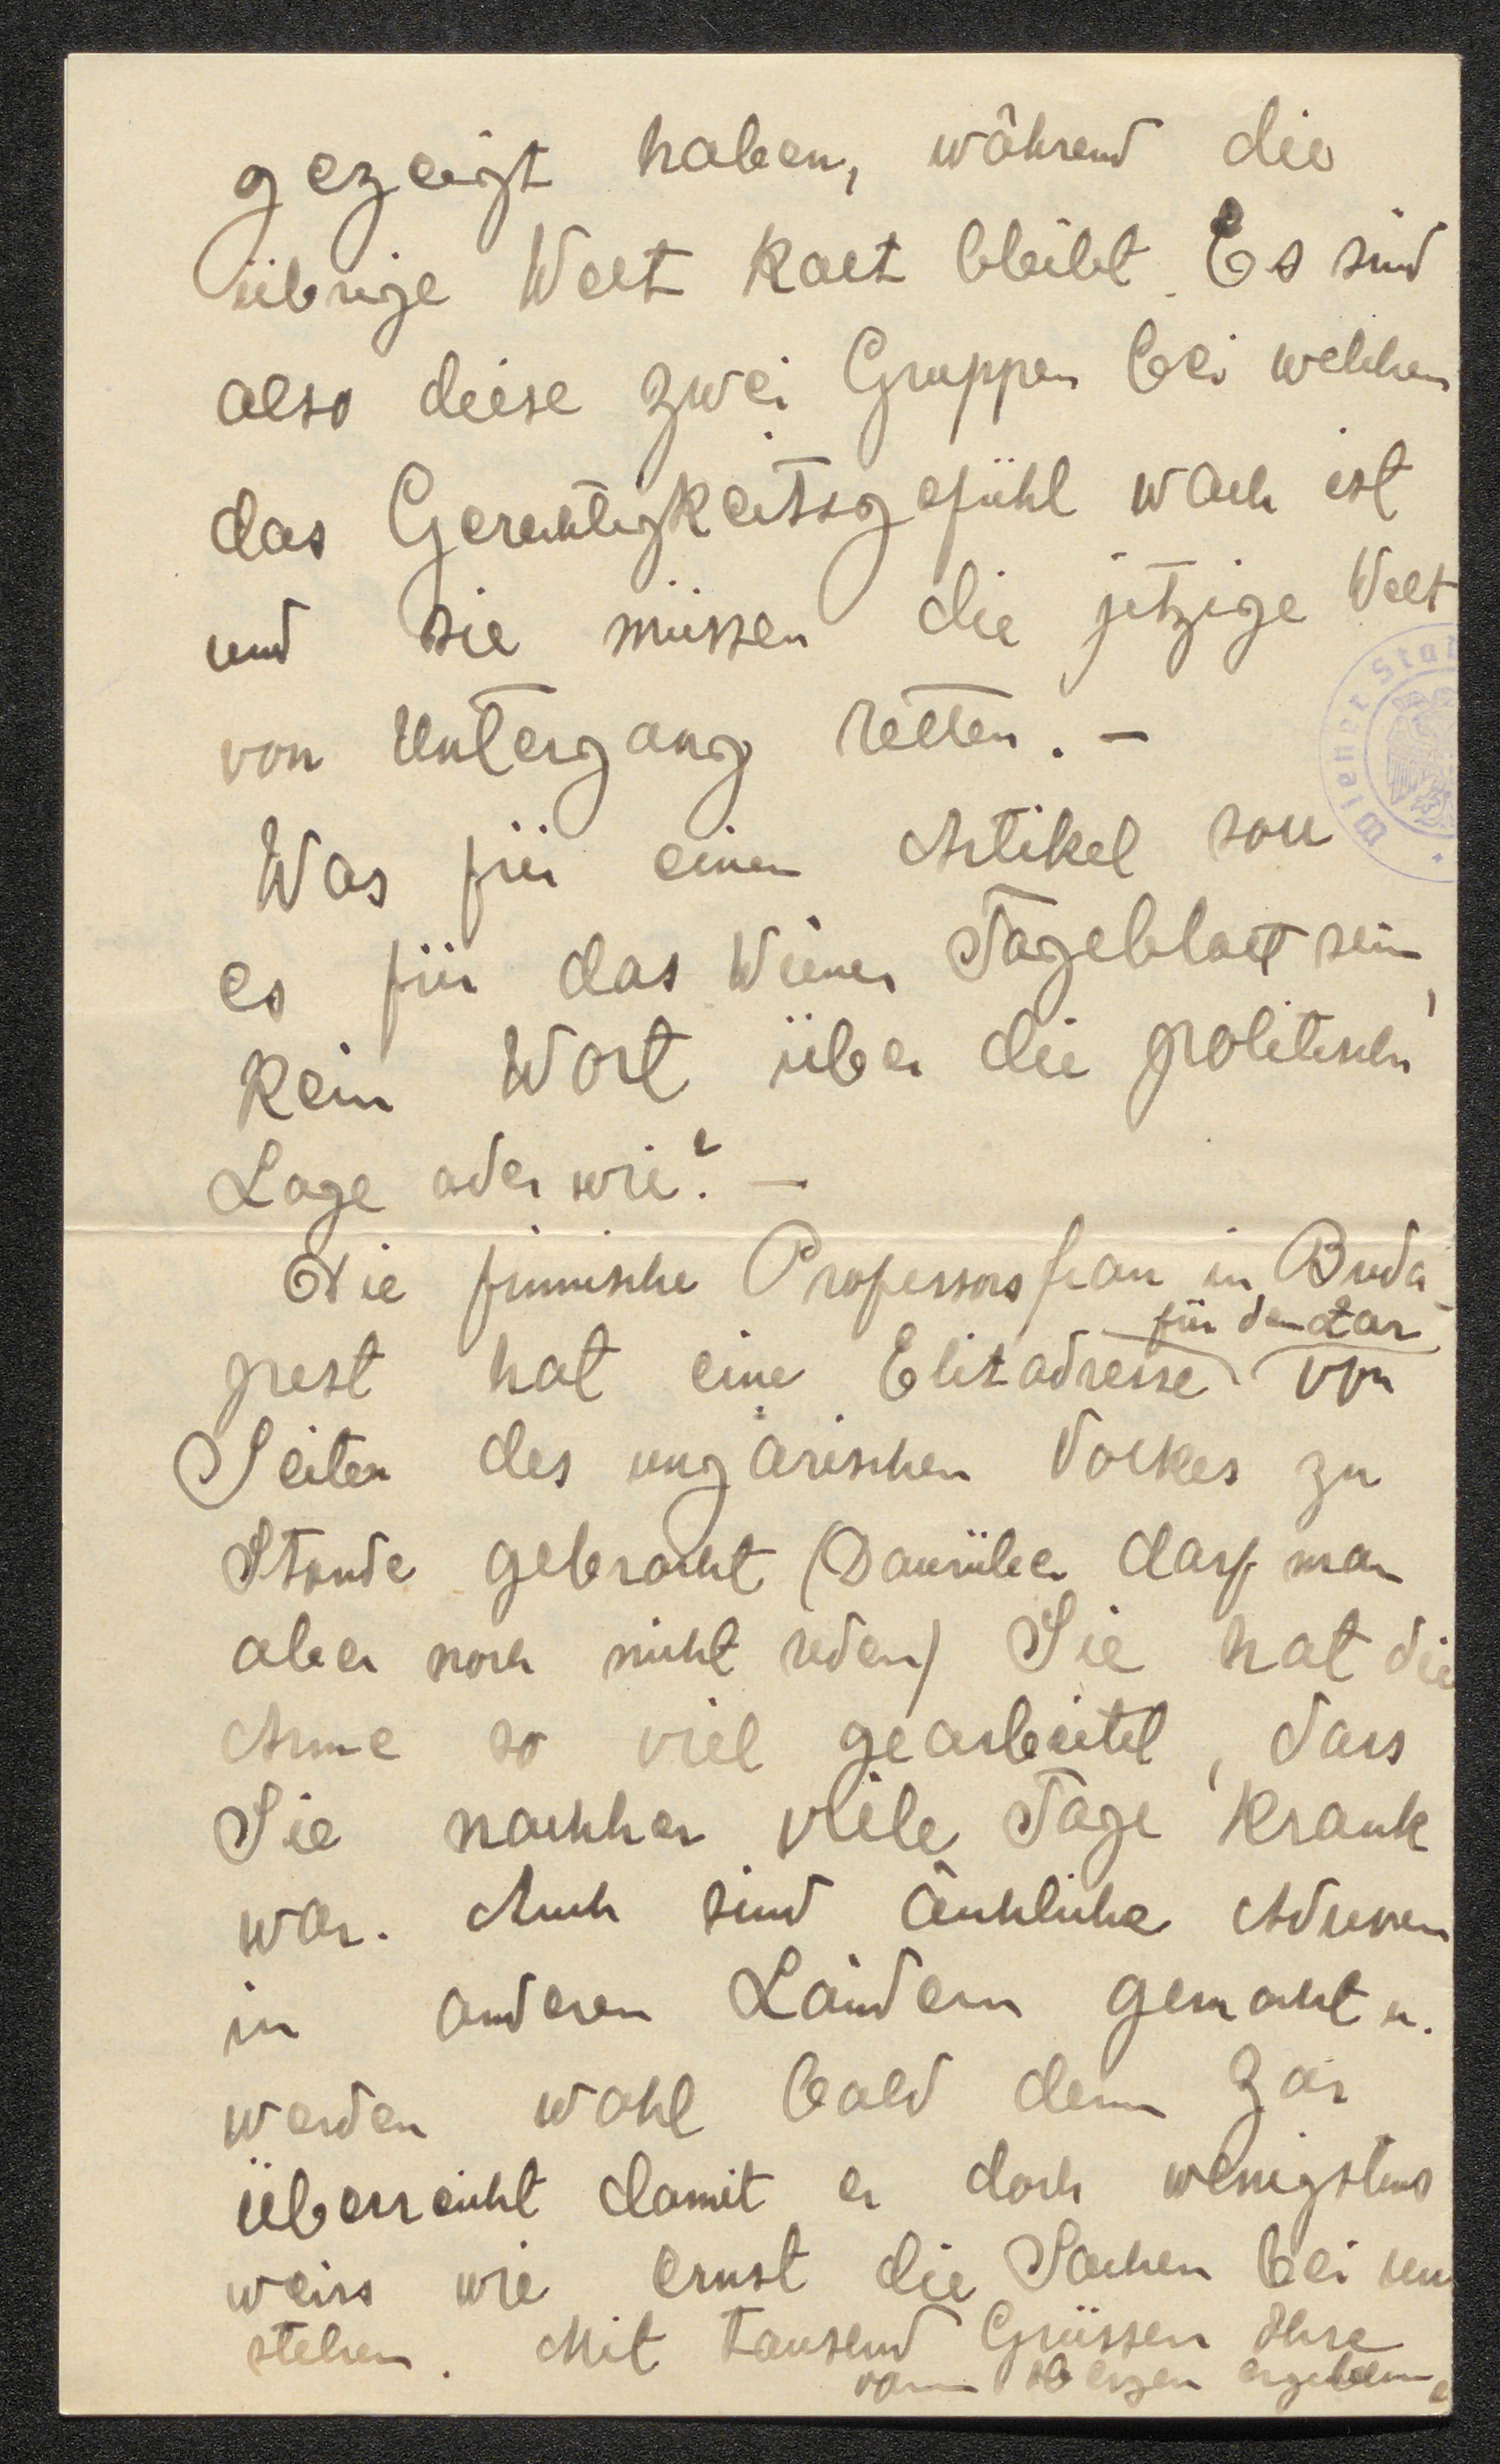 gezeigt haben, während die
übrige Welt kalt bleibt. Es sind
also diese zwei Gruppen bei welchen
das Gerechtigkeitsgefühl wach ist
und sie müssen die jetzige Welt
von Untergang retten. –
Was für einen Artikel soll
es für das Wiener Tageblatt sein,
kein Wort über die politischen
Lage oder wie? –
Die finnische Professorsfrau in Buda-
für den Zar
pest hat eine Elitadresse von
Seiten des ungarischen Volkes zu
Stande gebracht (Darüber darf man
aber noch nicht reden) Sie hat die
Arme so viel gearbeitet, dass
Sie nachher viele Tage krank
war. Auch sind änhliche Adressen
in anderen Ländern gemacht u.
werden wohl bald dem Zar
überreicht damit er doch wenigstens
weiss wie ernst die Sachen bei uns
stehen. Mit tausend Grüssen Ihre
vom Herzen ergebene
Wiener Sta